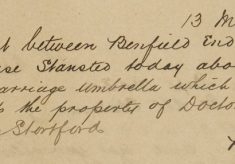 13 M
t between Benfield End
se Stansted today abo
arriage umbrella which
the property of Doctor
Stortford.